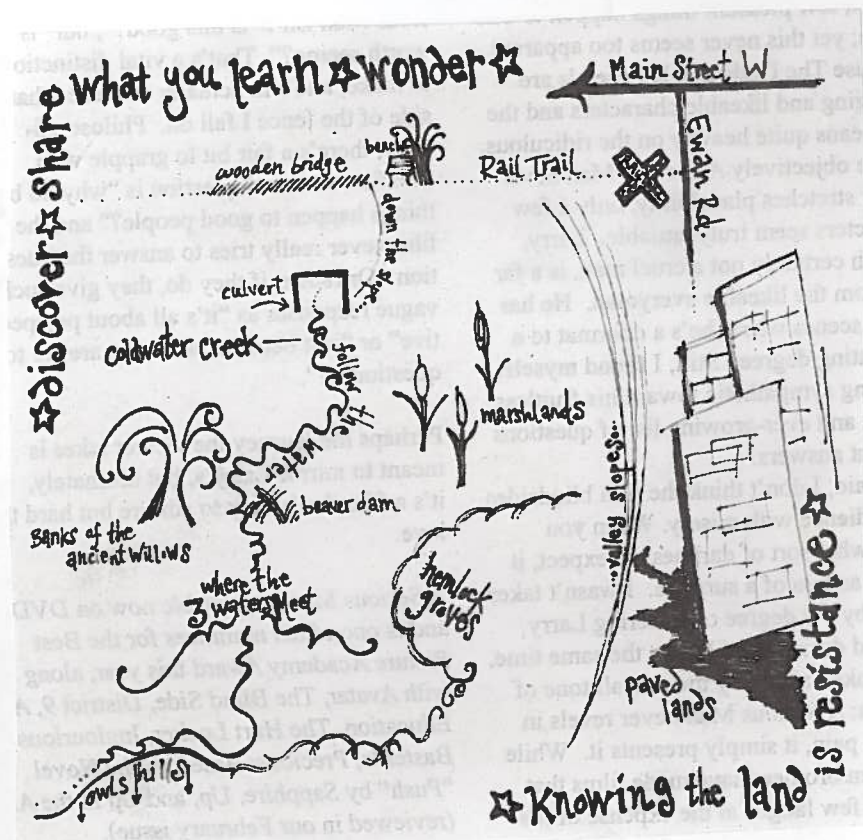 ☆discover☆Share what you learn☆wonder☆
Main Street, W
Ewen Rd.
Rail Trail
bench
wooden bridge
down the slope
culvert
coldwater creek
follow the water
marshlands
beaver dam
Banks of the
ancient willows
where the
3 waters Meet
hemlock
groves
...valley slopes...
paved
lands
owl's hills
☆ Knowing the land is resistance ☆